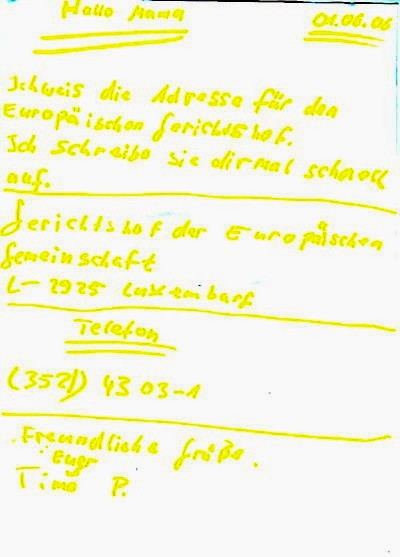 Hallo Mama
01.06.06
Ich weis die Adresse für den
Europäischen Gerichtshof.
Ich schreibe sie dir mal schnell
auf.
Gerichtshof der Europäischen
Gemeinschaft
L-2925 Luxemburg
Telefon
(352) 43 03-1
Freundliche Grüße.
Euer
Timo P.